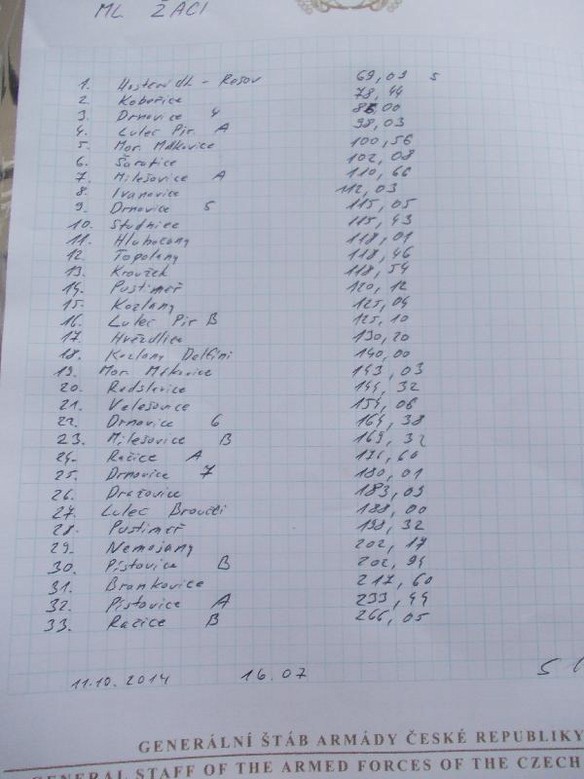 ML ŽÁCI
1. Hostěrádky - Rešov 69,03 s
2. Kobeřice 78,44
3. Drnovice 4 86,00
4. Luleč Pir. A 98,03
5. Mor. Málkovice 100,56
6. Šaratice 102,08
7. Milešovice A 110,66
8. Ivanovice 112,03
9. Drnovice 5 115,05
10. Studnice 115,43
11. Hlubočany 118,01
12. Topolany 118,46
13. Kroužek 118,54
14. Pustiměř 120,12
15. Kozlany 125,04
16. Luleč Pir B 125,10
17. Hvězdlice 130,20
18. Kozlany Delfíni 140,00
19. Mor. Málkovice 143,03
20. Radslavice 144,32
21. Velešovice 154,06
22. Drnovice 6 164,38
23. Milešovice B 169,32
24. Račice A 176,60
25. Drnovice 7 180,01
26. Dražovice 183,09
27. Luleč Broučci 188,00
28. Pustiměř 198,32
29. Nemojany 202,17
30. Pístovice B 202,94
31. Brankovice 217,60
32. Pístovice A 233,44
33. Račice B 266,05
11.10.2014 16.07
GENERÁLNÍ ŠTÁB ARMÁDY ČESKÉ REPUBLIKY
GENERAL STAFF OF THE ARMED FORCES OF THE CZECH